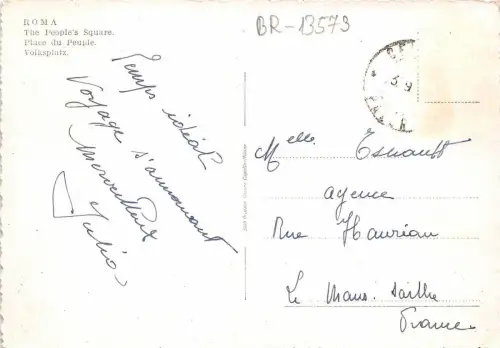 ROMA
The People's Square.
Place du Peuple.
Volksplatz.
BR-13573
Temps idéal
Voyage s'annonçant
merveilleux
Melle
Agence
Rue Hauréau
Le Mans. Sarthe
France